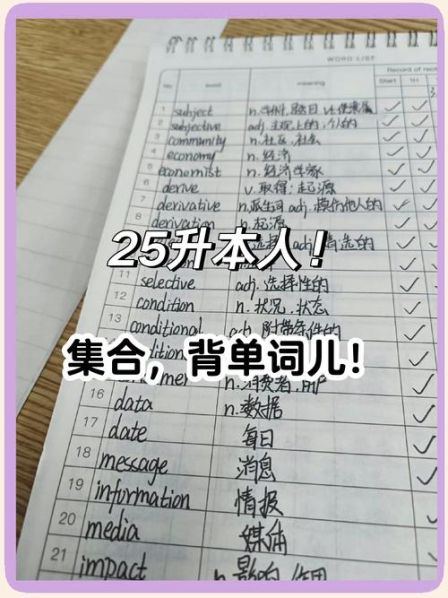 WORD LIST
Record of
No word meaning Start 1H
1 subject n.学科,题目 vt.使隶属
2 subjective adj.主观上的,个人的
3 community n.社区,社会
4 economy n.经济
5 economist n.经济学家
6 derive v.取得;起源
7 derivative n.派生词 adj.模仿他人的
8 derivation n.起源
25升本人!
11 selective adj.选择性的
12 condition n.状况,状态
conditional adj.附带条件的
集合,背单词儿!
n.消费者,用户
16 data n.数据
17 date 每日
18 message 消息
19 information 情报
20 media 媒体
21 impact n.影响,作用